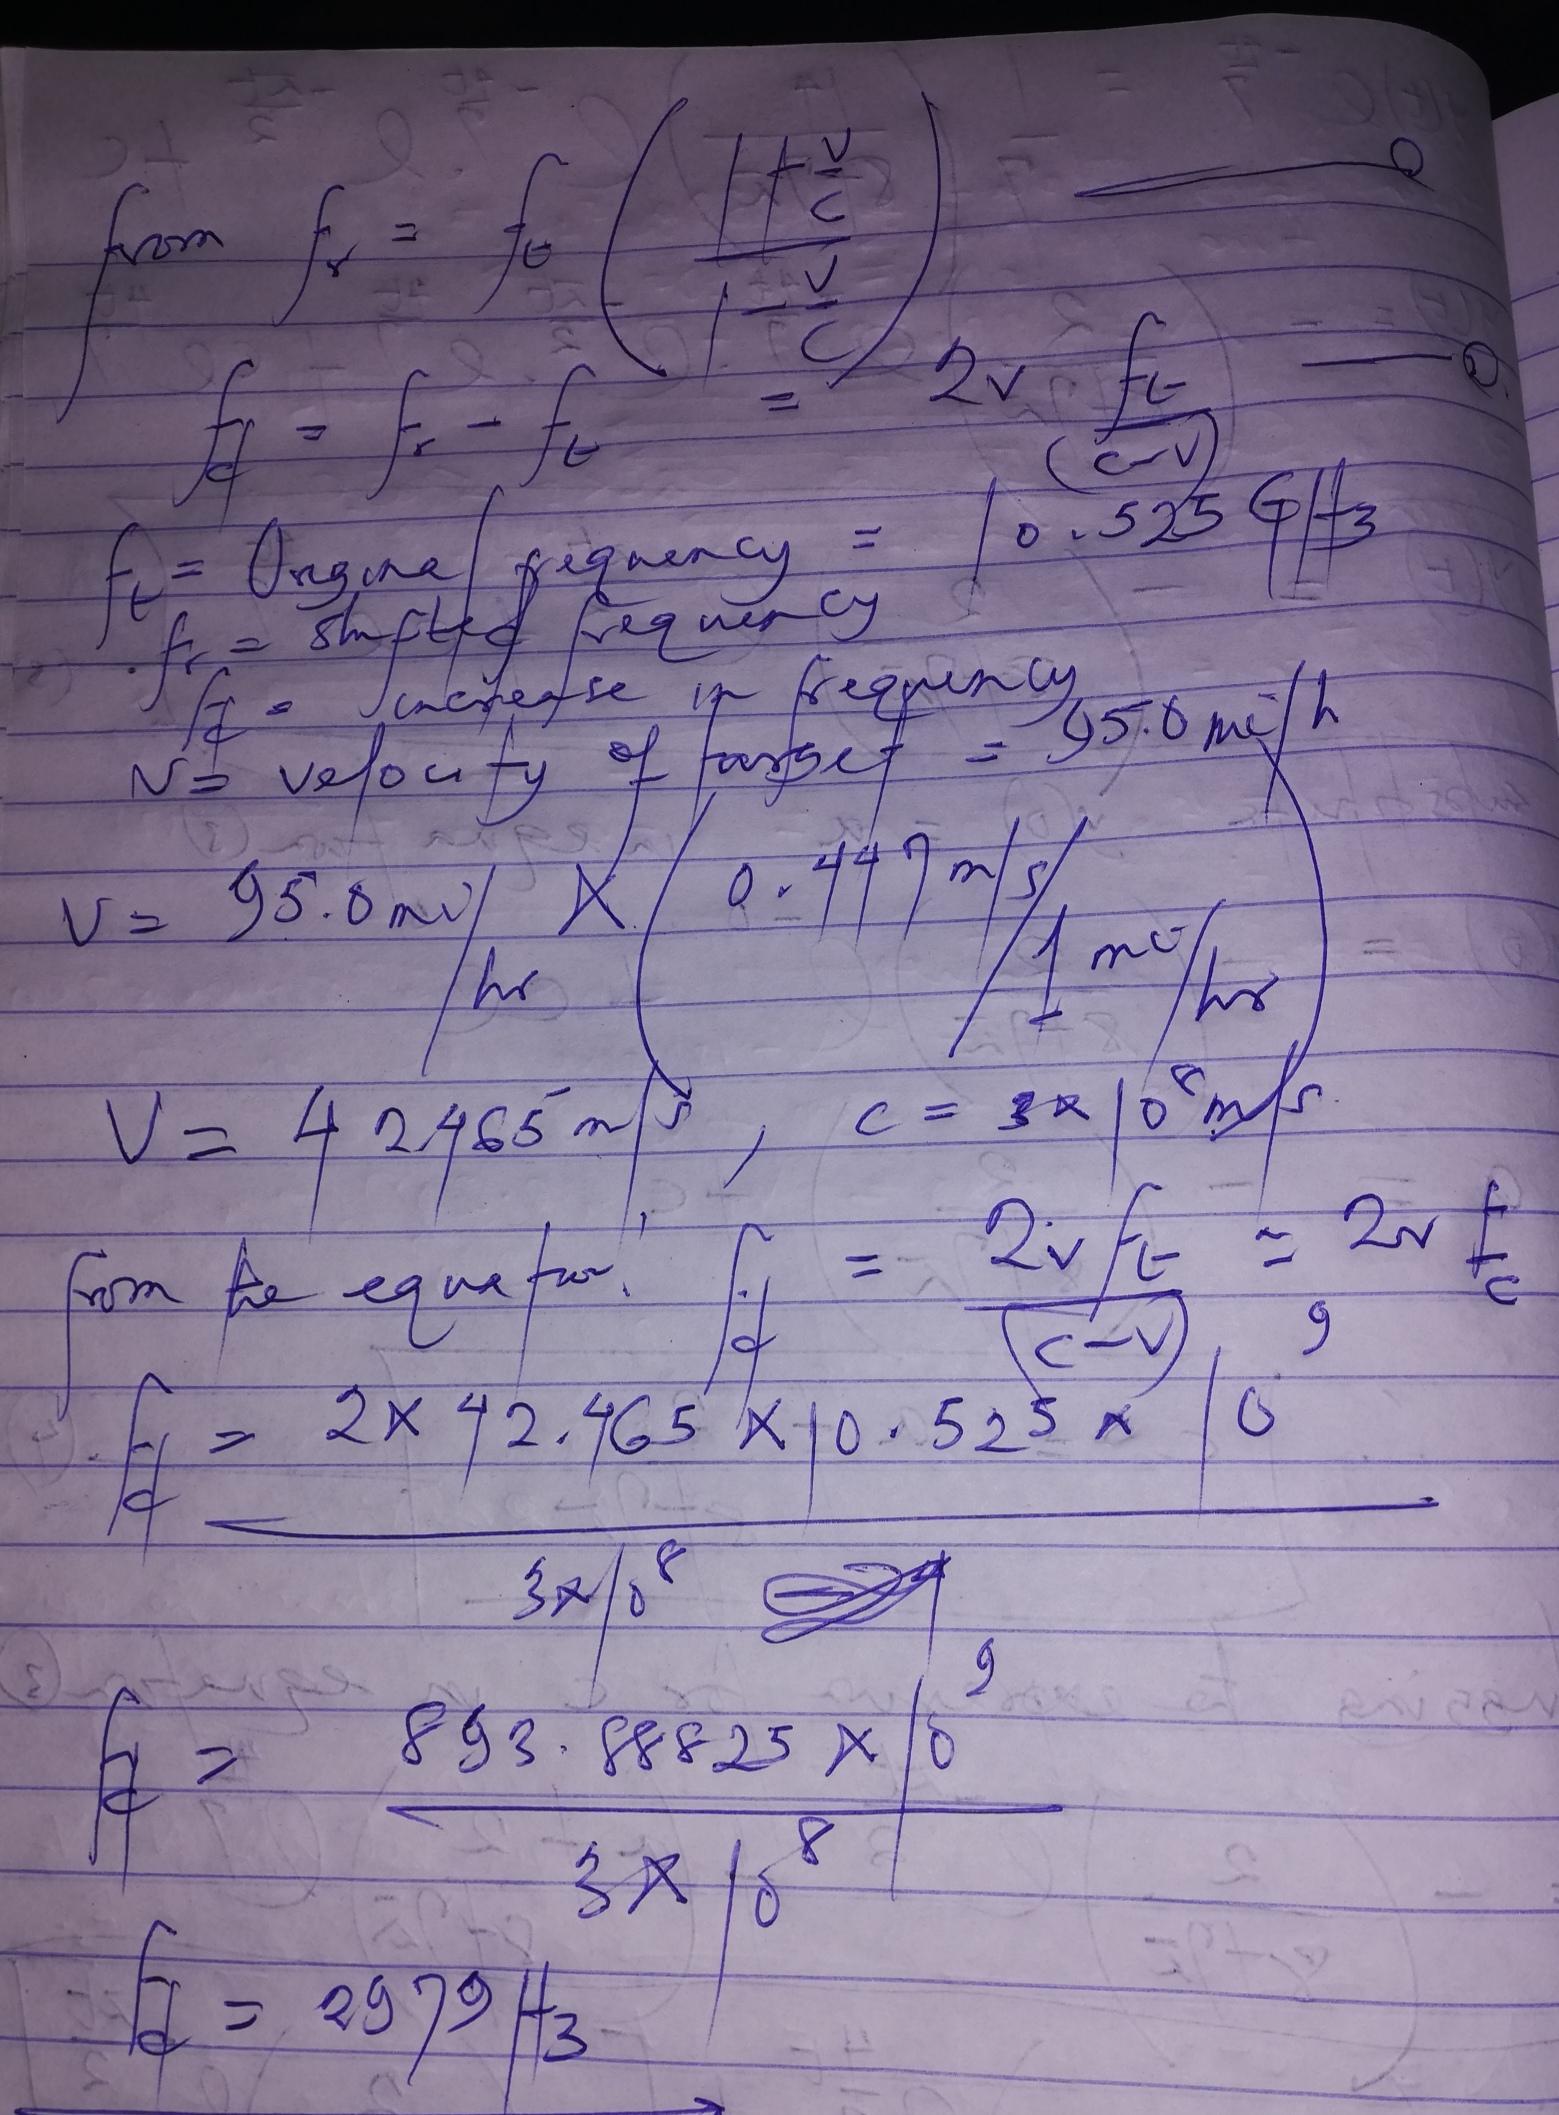 from fr = ft ( 1 + v/c / 1 - v/c ) —— ①
fd = fr - ft = 2v ft/(c-v) —— ②
ft = Orginal frequency = 10.525 GHz
fr = shifted frequency
fd = increase in frequency
v = velocity of target = 95.0 mi/h
V = 95.0 mi/hr X ( 0.447 m/s / 1 mi/hr )
V = 42.465 m/s , c = 3x10⁸ m/s
from the equation, fd = 2v ft/(c-v) ≈ 2v f/c
fd = 2x 42.465 x 10.525 x 10⁹
3x10⁸
fd = 893.88825 x 10⁹
3 x 10⁸
fd = 2979 Hz